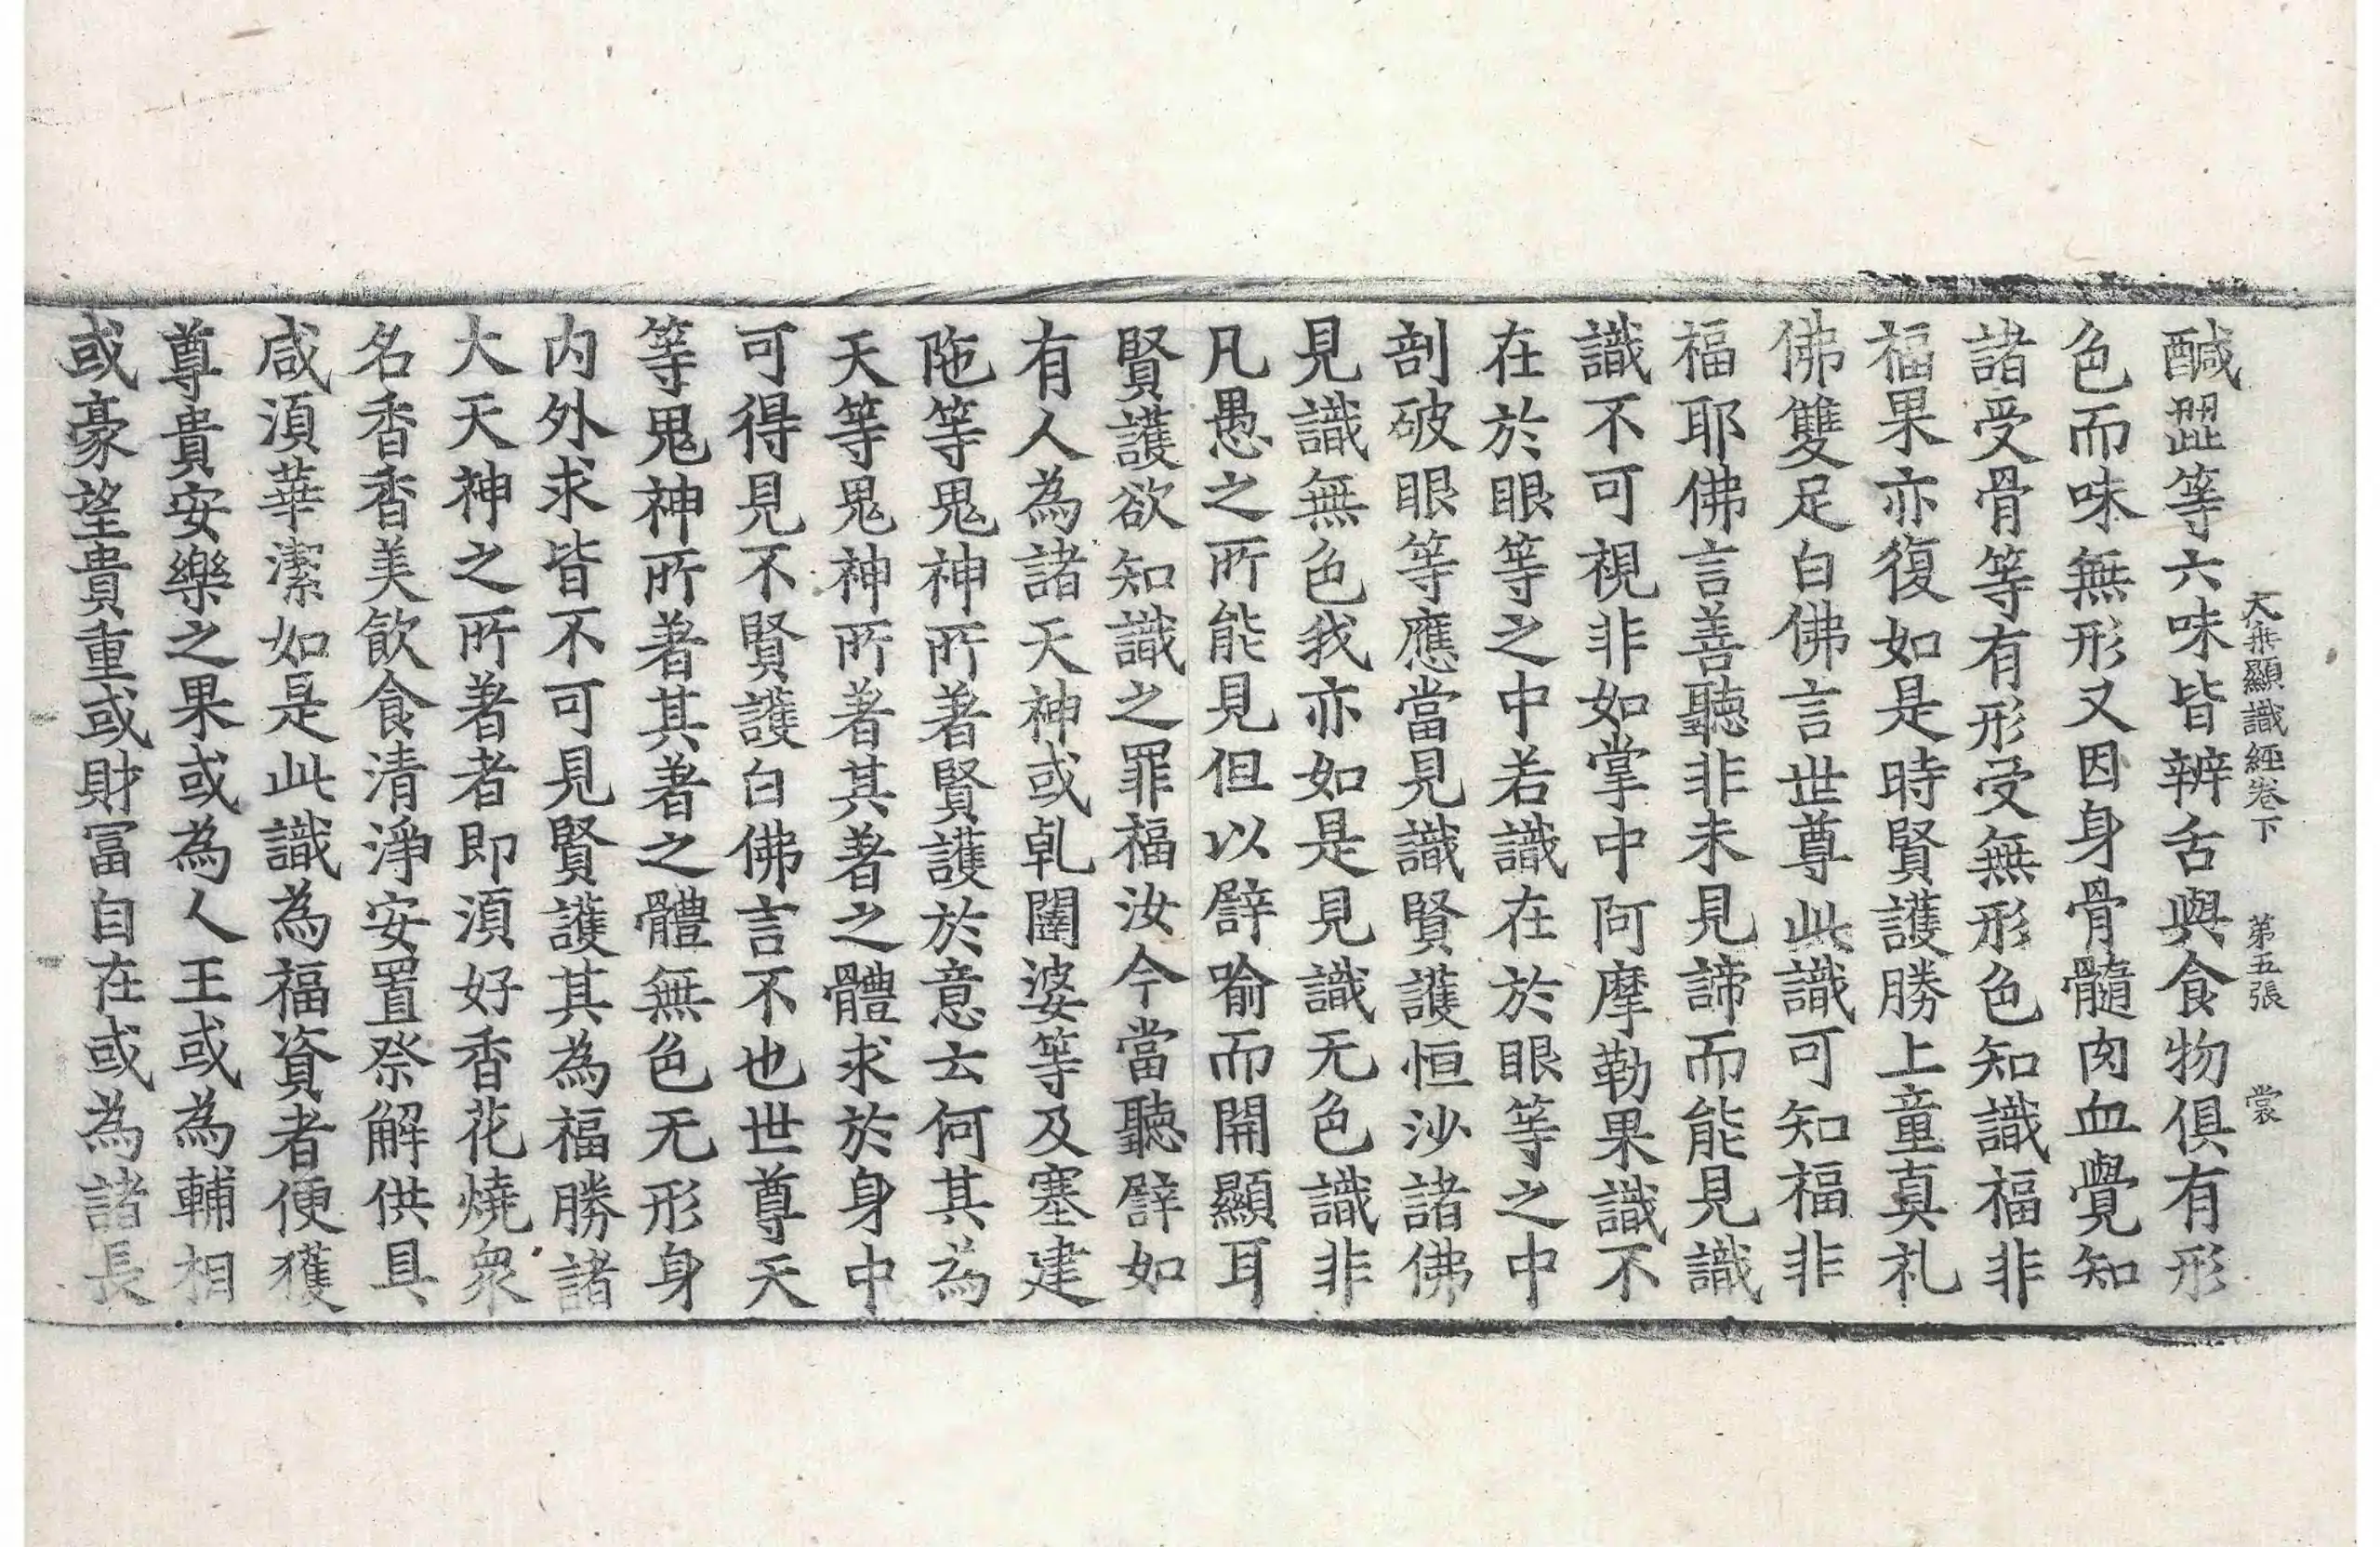 大乗顯識経卷下 第五張 裳
醎澀等六味皆辨舌與食物俱有形
色而味無形又因身骨髓肉血覺知
諸受骨等有形受無形色知識福非
福果亦復如是時賢護勝上童真礼
佛雙足白佛言世尊此識可知福非
福耶佛言善聽非未見諦而能見識
識不可視非如掌中阿摩勒果識不
在於眼等之中若識在於眼等之中
剖破眼等應當見識賢護恒沙諸佛
見識無色我亦如是見識无色識非
凡愚之所能見但以譬喻而開顯耳
賢護欲知識之罪福汝今當聽譬如
有人為諸天神或乹闥婆等及塞建
陁等鬼神所著賢護於意云何其為
天等鬼神所著其著之體求於身中
可得見不賢護白佛言不也世尊天
等鬼神所著其著之體無色无形身
内外求皆不可見賢護其為福勝諸
大天神之所著者即須好香花燒衆
名香香美飲食清淨安置祭解供具
咸須華潔如是此識為福資者便獲
尊貴安樂之果或為人王或為輔相
或豪望貴重或財冨自在或為諸長